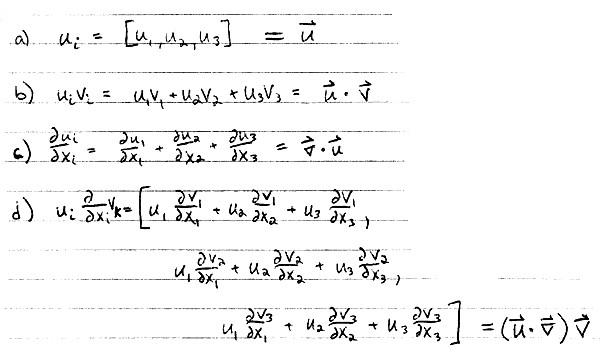 a) uᵢ = [u₁, u₂, u₃] = u⃗
b) uᵢvᵢ = u₁v₁ + u₂v₂ + u₃v₃ = u⃗ · v⃗
c) ∂uᵢ/∂xᵢ = ∂u₁/∂x₁ + ∂u₂/∂x₂ + ∂u₃/∂x₃ = ∇⃗ · u⃗
d) uᵢ ∂/∂xᵢ vₖ = [u₁ ∂v₁/∂x₁ + u₂ ∂v₁/∂x₂ + u₃ ∂v₁/∂x₃,
u₁ ∂v₂/∂x₁ + u₂ ∂v₂/∂x₂ + u₃ ∂v₂/∂x₃,
u₁ ∂v₃/∂x₁ + u₂ ∂v₃/∂x₂ + u₃ ∂v₃/∂x₃] = (u⃗ · ∇⃗) v⃗